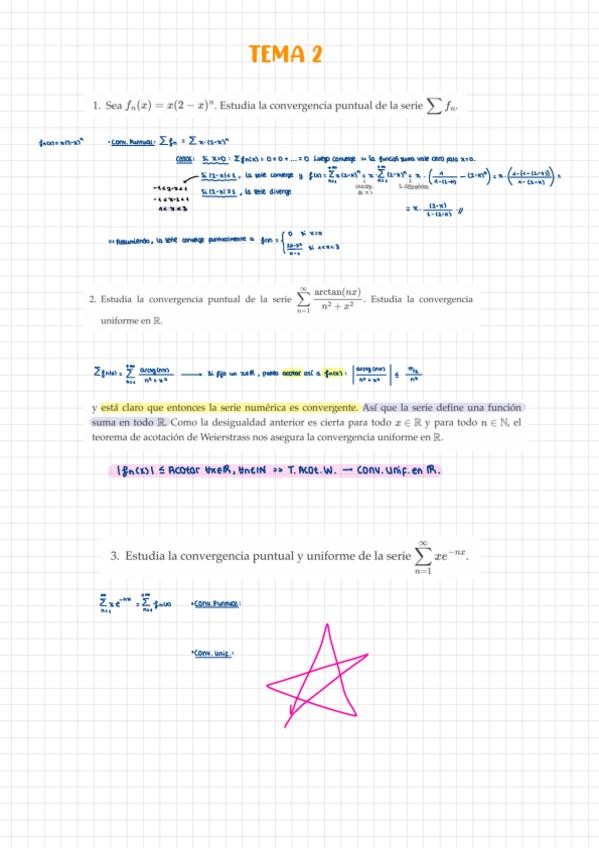 TEMA 2
1. Sea fₙ(x) = x(2 − x)ⁿ. Estudia la convergencia puntual de la serie ∑ fₙ.
fₙ(x) = x(2-x)ⁿ
· Conv. Puntual: ∑fₙ = ∑ x·(2-x)ⁿ
Casos: Si x=0: ∑fₙ(x) = 0+0+...=0 Luego converge ⇒ la función suma vale cero para x=0.
Si |2-x|<1, la serie converge y
-1<2-x<1
1<x<3
Si |2-x|≥1, la serie diverge
⇒ Resumiendo, la serie converge puntualmente a
0 si x=0
si 1<x<3
2. Estudia la convergencia puntual de la serie ∑_{n=1}^{∞} arctan(nx)/(n² + x²). Estudia la convergencia
uniforme en ℝ.
∑fₙ(x) = ∑_{n=1}^{+∞} arctg(nx)/(n²+x²) → Si fijo un x∈ℝ, puedo acotar así a fₙ(x): |arctg(nx)/(n²+x²)| ≤ (π/2)/n²
y está claro que entonces la serie numérica es convergente. Así que la serie define una función
suma en todo ℝ. Como la desigualdad anterior es cierta para todo x ∈ ℝ y para todo n ∈ ℕ, el
teorema de acotación de Weierstrass nos asegura la convergencia uniforme en ℝ.
|fₙ(x)| ≤ Acotar ∀x∈ℝ, ∀n∈ℕ ⇒ T. Acot. W. → Conv. Unif. en ℝ.
3. Estudia la convergencia puntual y uniforme de la serie ∑_{n=1}^{∞} xe^{−nx}.
∑_{n=1}^{∞} xe^{-nx} = ∑_{n=1}^{+∞} fₙ(x)
· Conv. Puntual:
· Conv. Unif.: